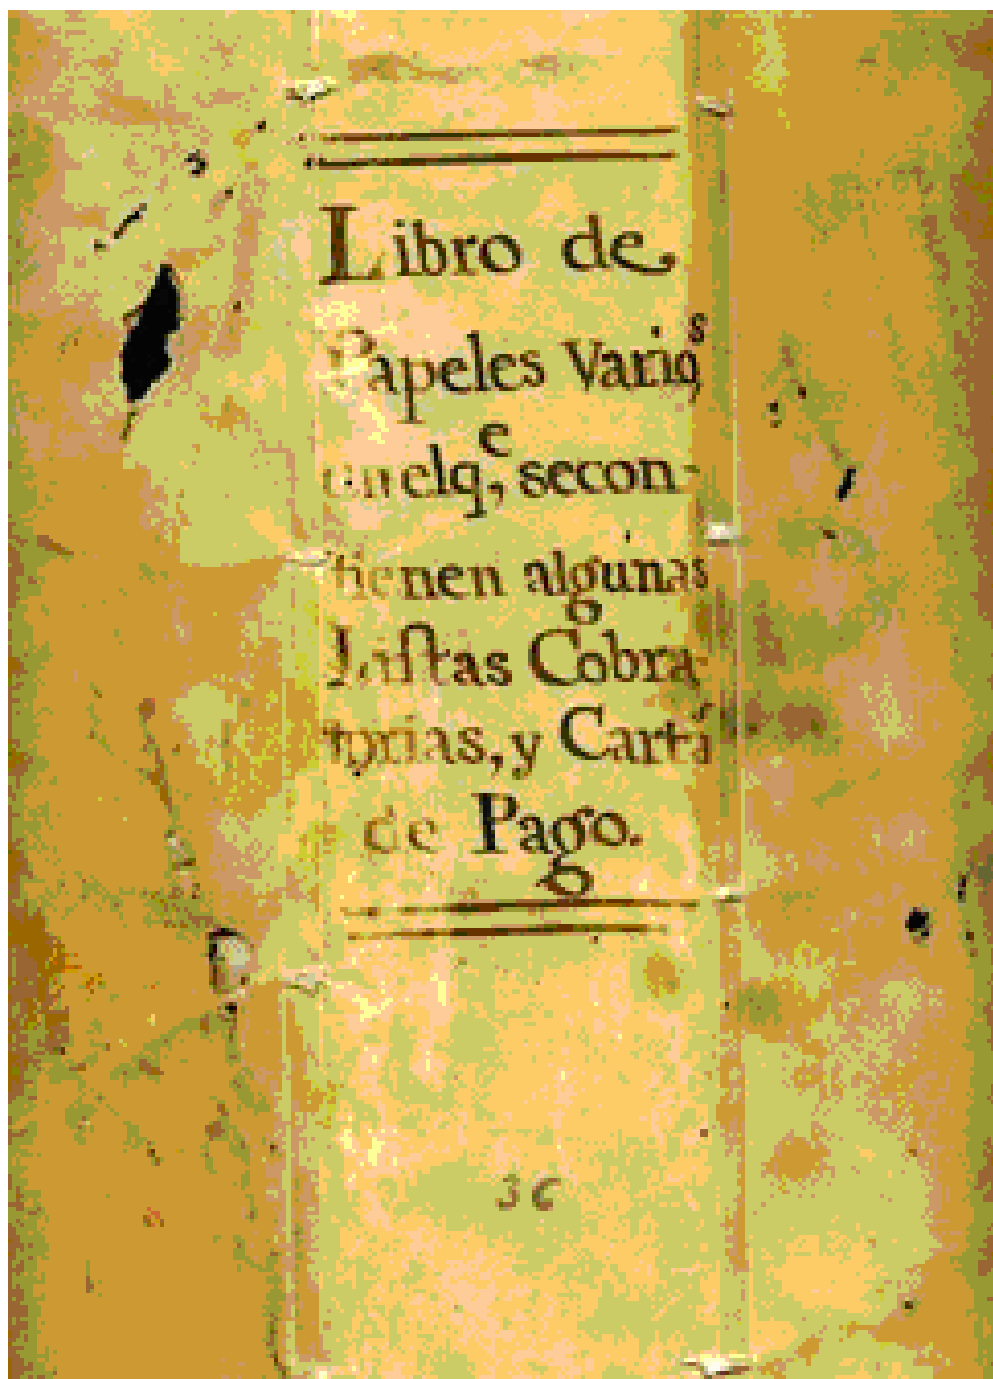 Libro de
Papeles Varios
en el q.e se con-
tienen algunas
Listas Cobra
torias, y Cartas
de Pago.
36